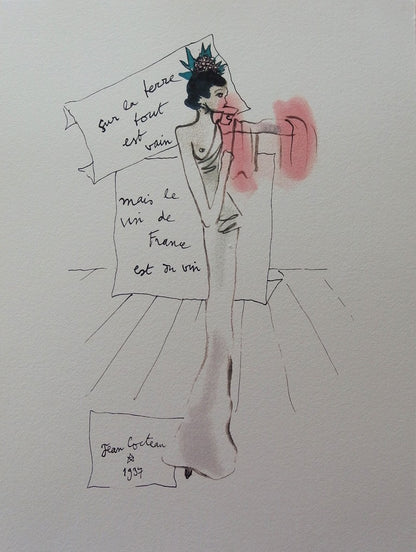 sur la terre
tout
est vain
mais le
vin de
France
est du vin
Jean Cocteau
1937